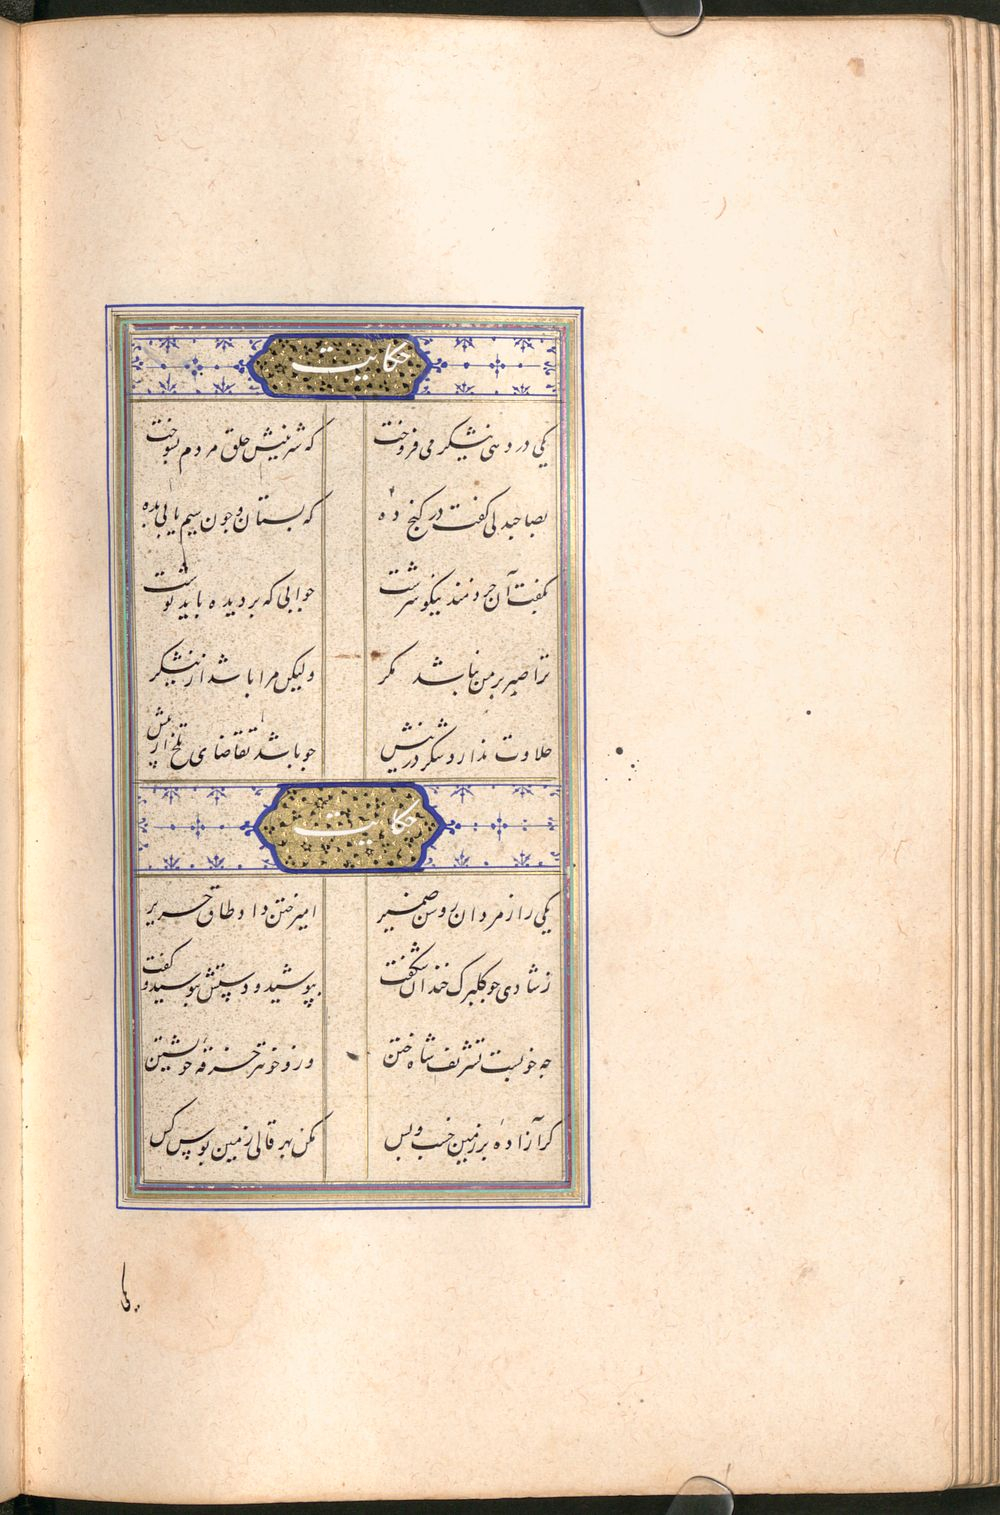 حکایت
یکی در دهی نیشکر می فروخت که شیرینیش حلق مردم بسوخت
بصاحبدلی کفت در کنج ده که بستان و جون سیم یابی بده
بکفت آن خردمند نیکو سرشت جوابی که بر دیده باید نوشت
ترا صبر بر من نباشد مکر ولیکن مرا باشد از نیشکر
حلاوت ندارد شکر در نیش جو باشد تقاضای تلخ از پیش
حکایت
یکی را ز مردان روشن ضمیر امیر ختن داد طاق حریر
ز شادی جو کلبرک خندان شکفت بپوشید و دستش ببوسید و کفت
جه خوبست تشریف شاه ختن وزو خوبتر خرقه خویشتن
کر آزاده بر زمین خسب و بس مکن بهر قالی زمین بوس کس